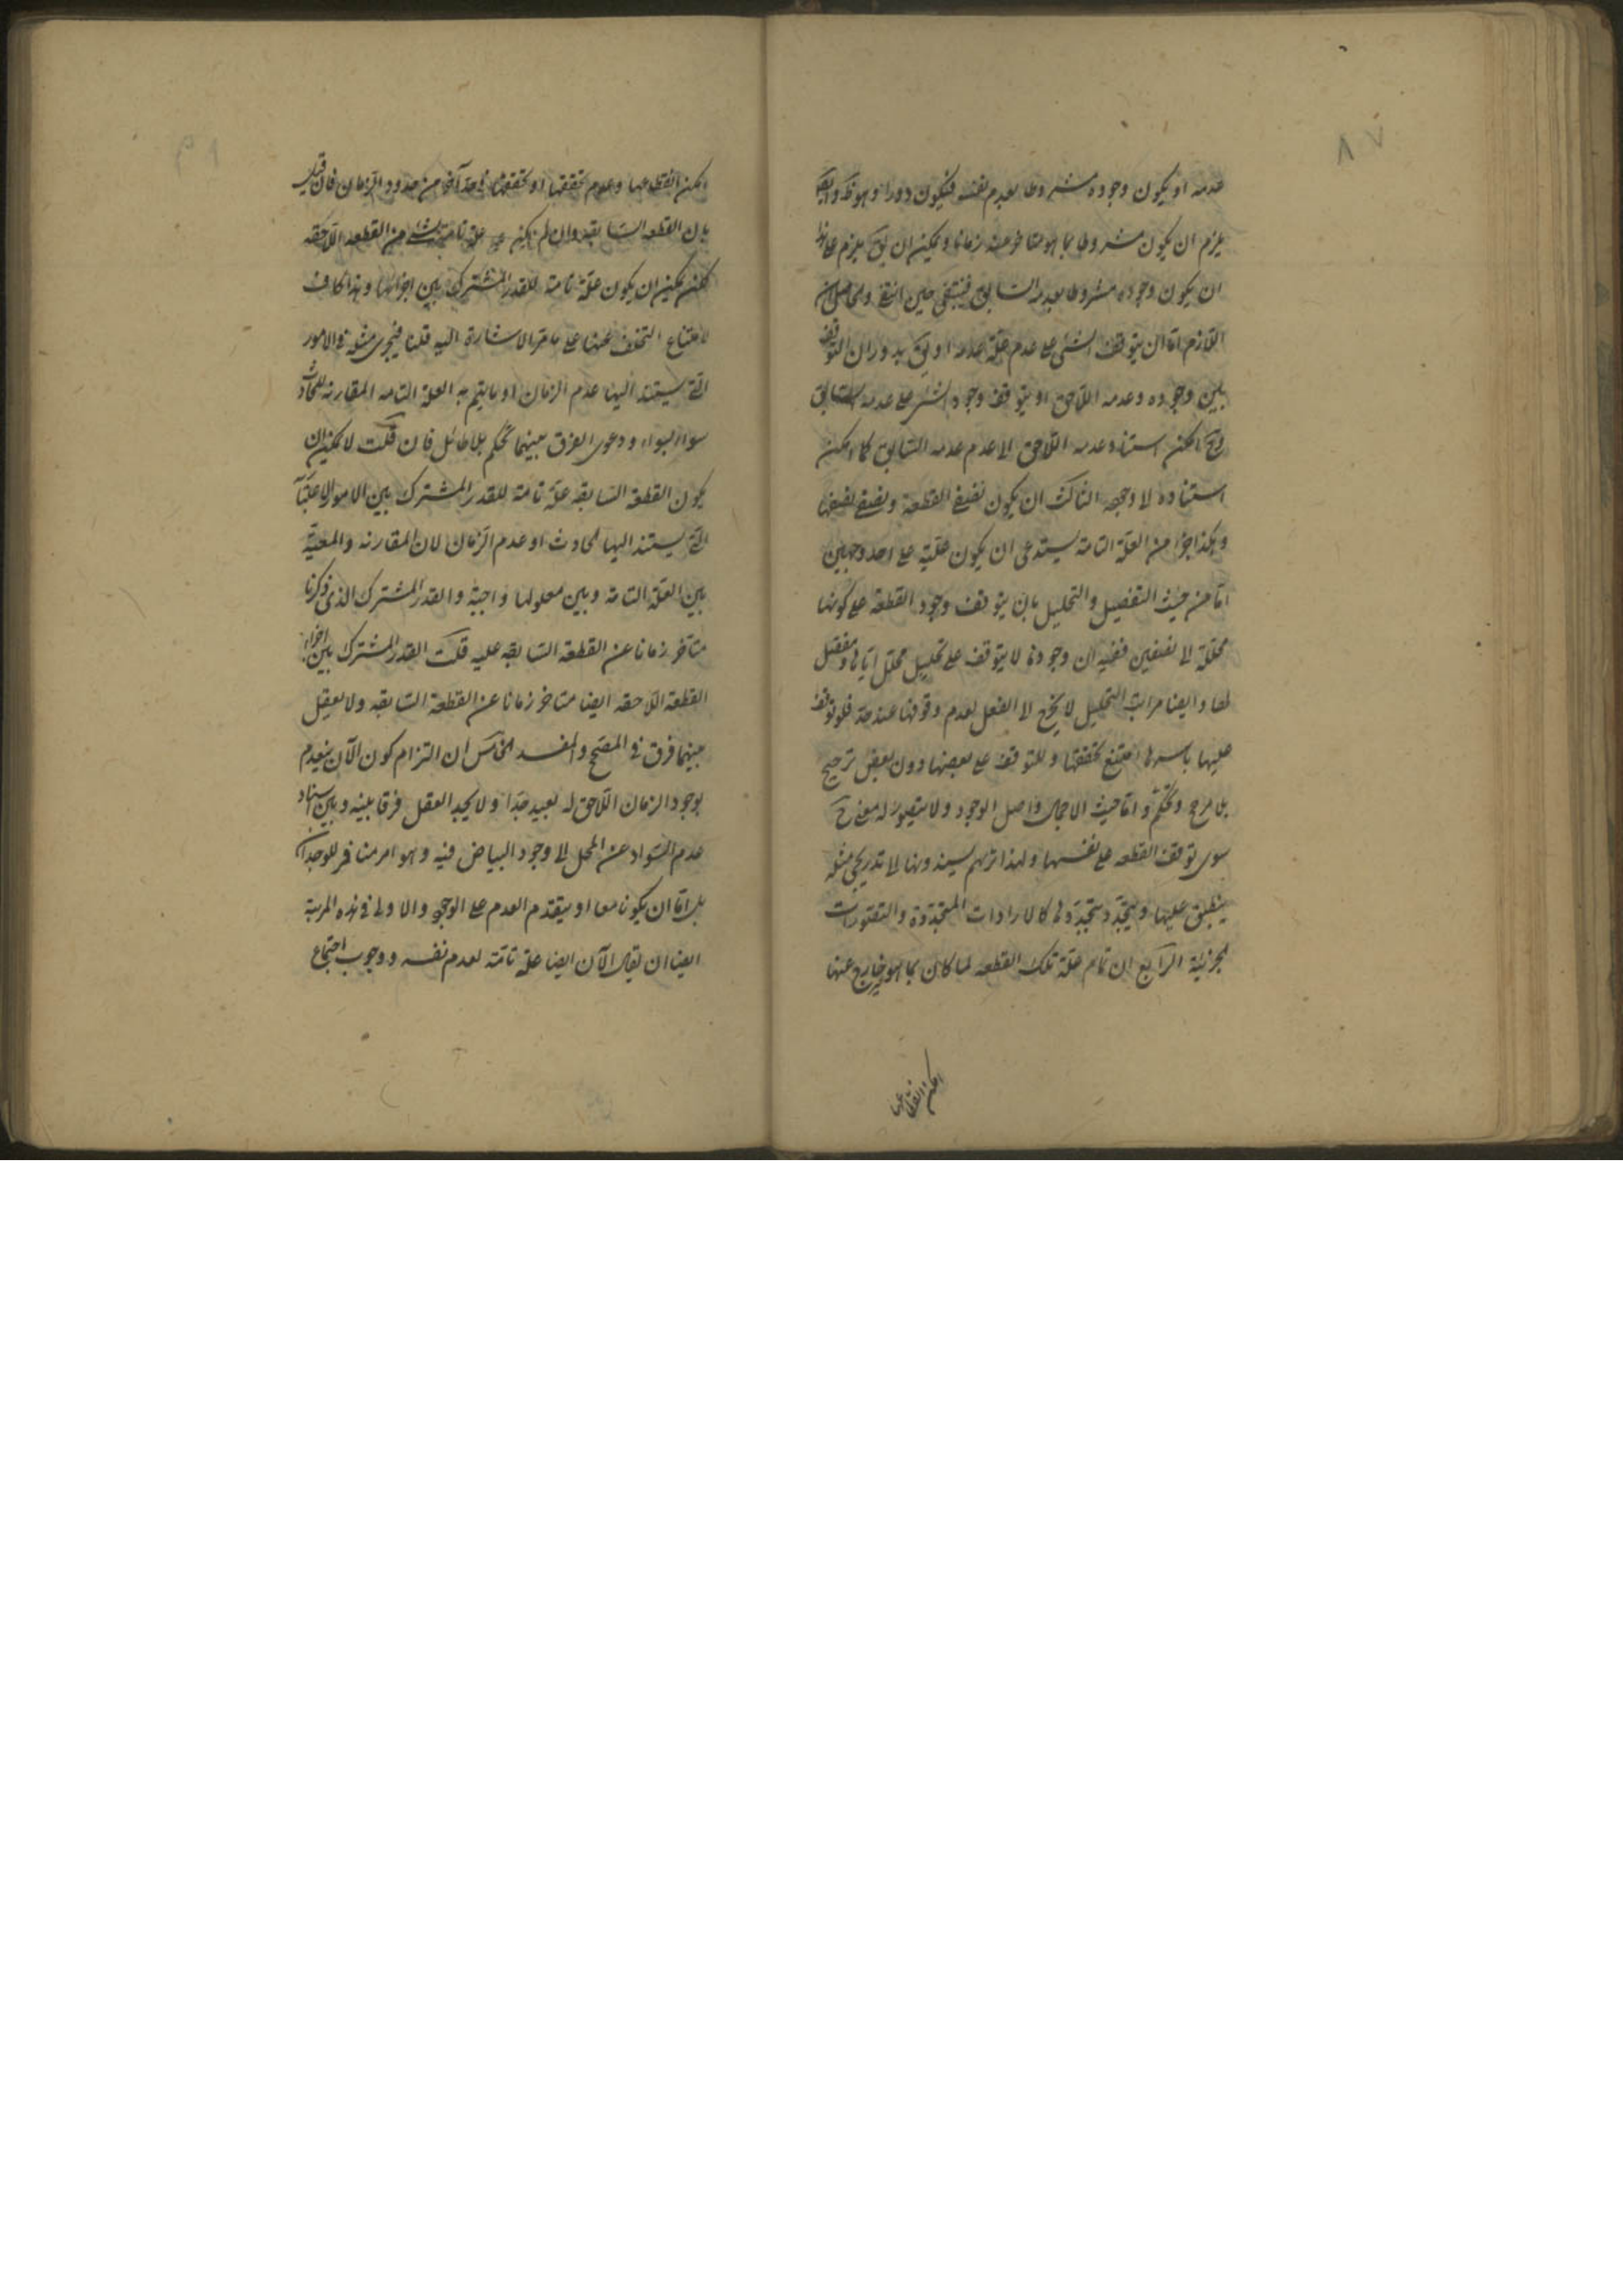 ٨٧
عدمه او يكون وجوده مشروطا بعدم نفسه فيكون دورا وهو
يلزم ان يكون مشروطا بما هو متاخر عنه زمانا ويمكن ان يق يلزم
ان يكون وجوده مشروطا بعدمه السابق فينتفى حين
اللازم اما ان يتوقف الشئ على عدم علة عدمه او يق بدوران التوقف
بين وجوده وعدمه اللاحق او يتوقف وجود الشئ على عدمه السابق
وح امكن استناد عدمه اللاحق الى عدم عدمه السابق كما امكن
استناده الى وجوده الثالث ان يكون نصف القطعة ونصف نصفها
وهكذا جزأ من العلة التامة يستدعى ان يكون علية على احد وجهين
اما من حيث التفصيل والتحليل بان يتوقف وجود القطعة على كونها
محللة الى نصفين ففيه ان وجودها لا يتوقف على تحليل محلل اياها ومفصل
لها وايضا مراتب التحليل لا يخرج الى الفعل لعدم وقوفها عند حد فلو توقف
عليها باسرها امتنع تحققها وللتوقف على بعضها دون بعض ترجيح
بلا مرجح وتحكم واما حيث الاجمال واصل الوجود ولا يتصور له معنى ح
سوى توقف القطعه على نفسها ولهذا تريهم يسندونها الى تدريجى مثله
ينطبق عليها ويتجدد بتجددها كالارادات المتجددة والتصورات
الجزئية الرابع ان تمام علة تلك القطعه لما كان بما هو خارج عنها
امكن انقطاعها
امكن انقطاعها وعدم تحققها او تحققها فى حد آخر من حدود الزمان فان قيل
بان القطعه السابقه وان لم يكن علة تامة لشئ من القطعه اللاحقه
لكن يمكن ان يكون علة تامة للقدر المشترك بين اجزائها وهذا كاف
لامتناع التخلف عنها على ما مر الاشارة اليه قلنا فيجرى مثله فى الامور
التى يستند اليها عدم الزمان او ما يتم به العلة التامه المقارنه للحادث
سواء بسواء ودعوى الفرق بينهما تحكم بلا طائل فان قلت لا يمكن ان
يكون القطعة السابقه علة تامة للقدر المشترك بين الامور الاعتبارية
التى يستند اليها الحادث او عدم الزمان لان المقارنه والمعية
بين العلة التامة وبين معلولها واجبة والقدر المشترك الذى ذكرنا
متاخر زمانا عن القطعة السابقه عليه قلت القدر المشترك بين اجزاء
القطعة اللاحقه ايضا متاخر زمانا عن القطعة السابقه ولا يعقل
بينهما فرق فى المصحح والمفسد الخامس ان التزام كون الآن ينعدم
بوجود الزمان اللاحق له بعيد جدا ولا يجد العقل فرقا بينه وبين اسناد
عدم السواد عن المحل الى وجود البياض فيه وهو امر منافر للوجدان
بل اما ان يكونا معا او يتقدم العدم على الوجود والاولى فى هذه المرتبة
ايضا ان يقال الآن ايضا علة تامة لعدم نفسه ووجوب اجتماع